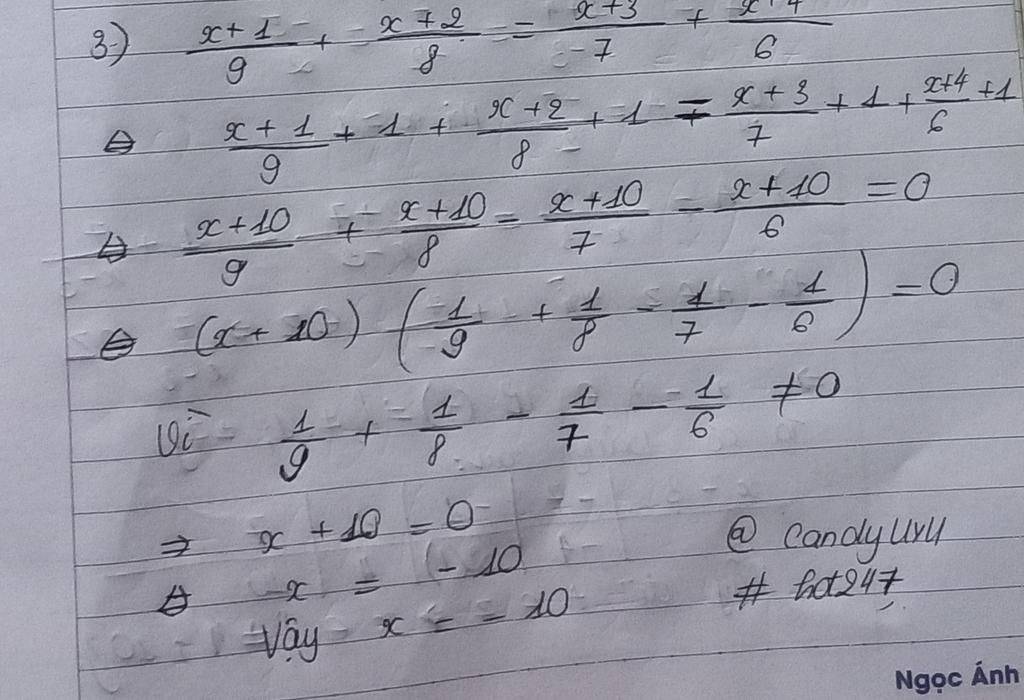 3) \frac{x+1}{9} + \frac{x+2}{8} = \frac{x+3}{7} + \frac{x+4}{6}
⇔ \frac{x+1}{9} + 1 + \frac{x+2}{8} + 1 = \frac{x+3}{7} + 1 + \frac{x+4}{6} + 1
⇔ \frac{x+10}{9} + \frac{x+10}{8} - \frac{x+10}{7} - \frac{x+10}{6} = 0
⇔ (x+10) (\frac{1}{9} + \frac{1}{8} - \frac{1}{7} - \frac{1}{6}) = 0
Vì \frac{1}{9} + \frac{1}{8} - \frac{1}{7} - \frac{1}{6} ≠ 0
⇒ x + 10 = 0
⇔ x = -10
Vậy x = -10
@ CandyUvU
# hot247
Ngọc Ánh